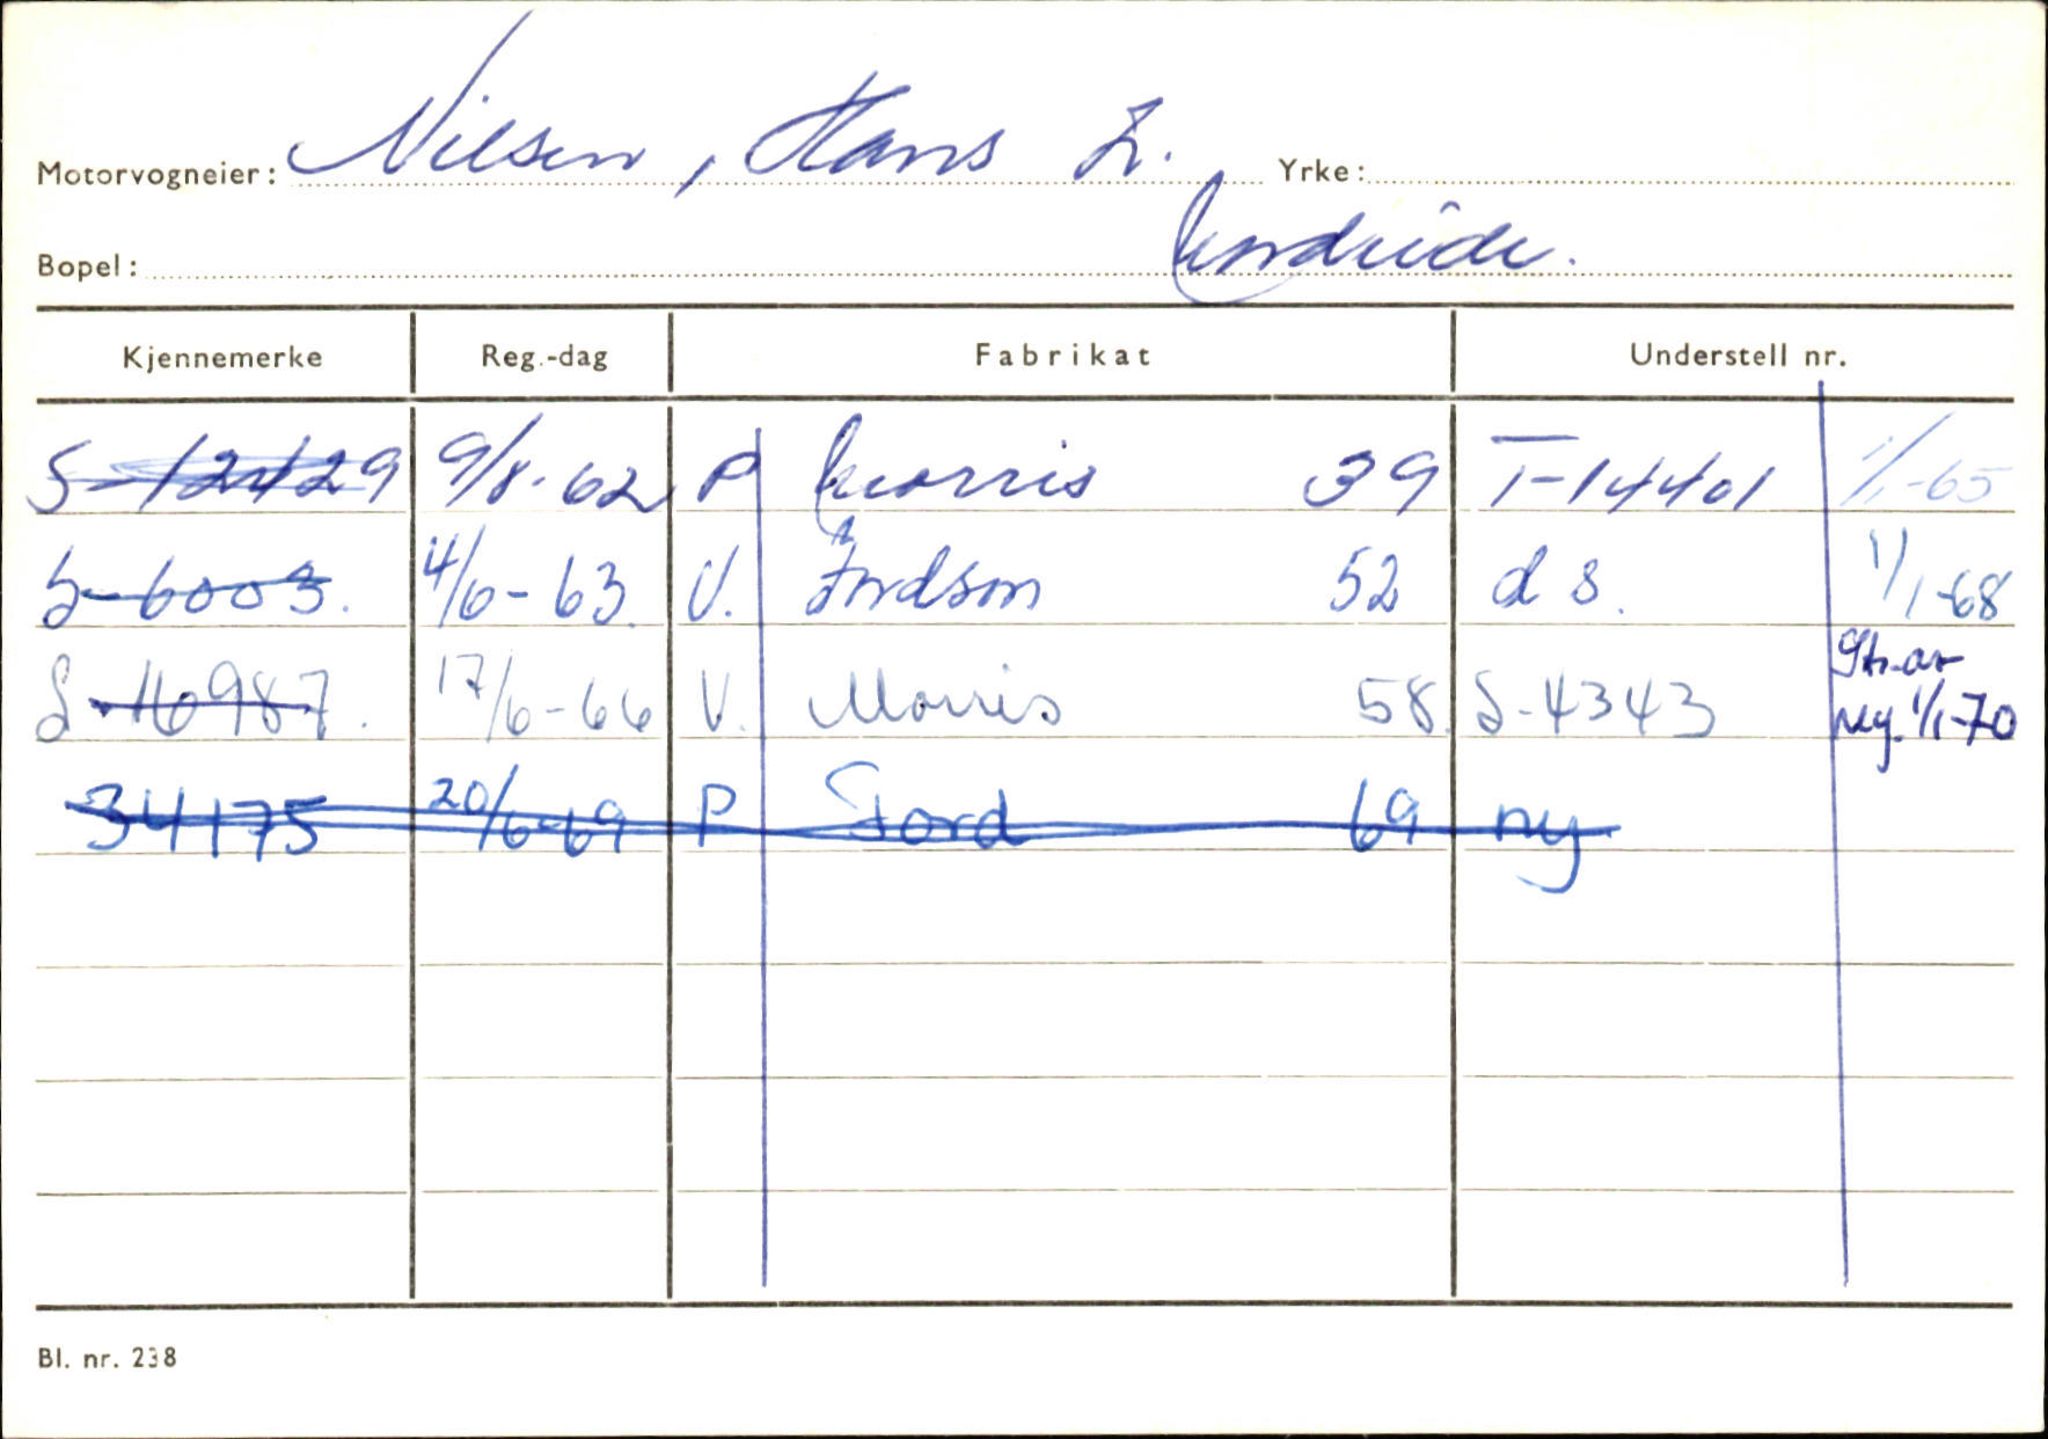 Motorvogneier: Nilsen, Hans L. Yrke:
Bopel: Nordeide.
Kjennemerke Reg.-dag Fabrikat Understell nr.
S-12429 9/8-62 P Morris 39 T-14401 1/1-65
S-6003. 4/6-63. V. Fordson 52 d s. 1/1-68
S-16987. 17/6-66 V. Morris 58. S-4343 Str. av reg. 1/1-70
34175 20/6-69 P Ford 69 ny
Bl. nr. 238